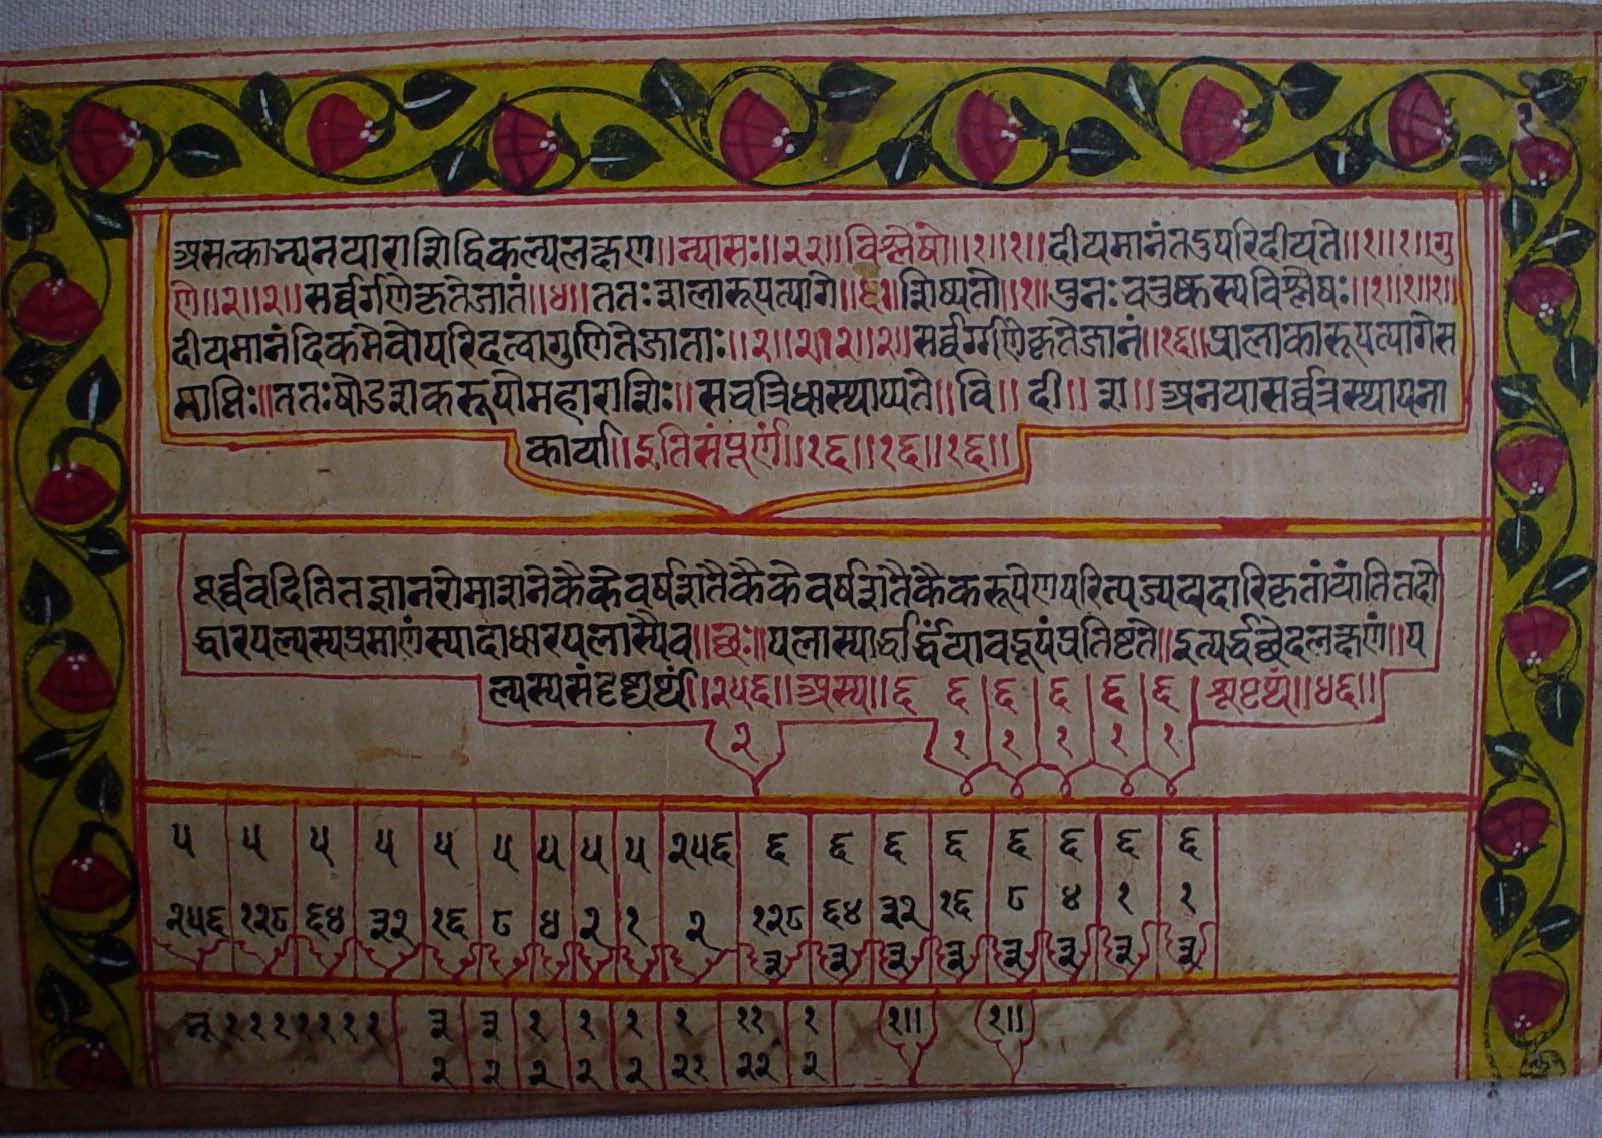 असत्कान्यनयाराशिद्विकल्पलक्षण॥न्यासः॥२२॥विश्लेषो॥१॥१॥दीयमानंतदुपरिदीयते॥१॥१॥गु
णे॥२॥२॥सर्व्वर्गणेकृतेजातं॥४॥ततःशलारूपत्यागे॥४॥शिष्यतो॥१॥पुनःचतुष्कस्यविश्लेषः॥१॥१॥१॥
दीयमानंदिकमेवोपरिदत्वागुणितेजाताः॥२॥२॥२॥२॥सर्व्वर्गणेकृतेजानं॥१६॥प्रालाकारूपत्यागेस
माप्तिः॥ततःषोडशकरूपोमहाराशिः॥सचत्रिधास्थाप्यते॥वि॥दी॥श॥अनयासर्व्वत्रस्थापना
कार्या॥इतिसंपूर्णं॥१६॥१६॥१६॥
पूर्व्ववदितितज्ञानरोमाशनेकैकेवर्षशतैकैकेवर्षशतैकैकरूपेणपरित्यज्य
द्वारपल्यस्यप्रमाणंस्यादाधारपलास्यैव॥छः॥पलास्यार्द्धार्द्धंयावद्रूपंप्रतिष्टते॥इत्यर्द्धछेदलक्षणं॥प
ल्यस्य ॥२५६॥अस्य॥६ ६ ६ ६ ६ ६ ॥४६॥
२ १ १ १ १ १
५ ५ ५ ५ ५ ५ ५ ५ ५ २५६ ६ ६ ६ ६ ६ ६ ६ ६
२५६ १२८ ६४ ३२ १६ ८ ४ २ १ २ १२८ ६४ ३२ १६ ८ ४ १ १
३ ३ ३ ३ ३ ३ ३ ३
मू १ १ १ १ १ १ १ ३ ३ १ १ १ १ ११ १ १॥ १॥
२ २ २ २ २ २२ २२ २